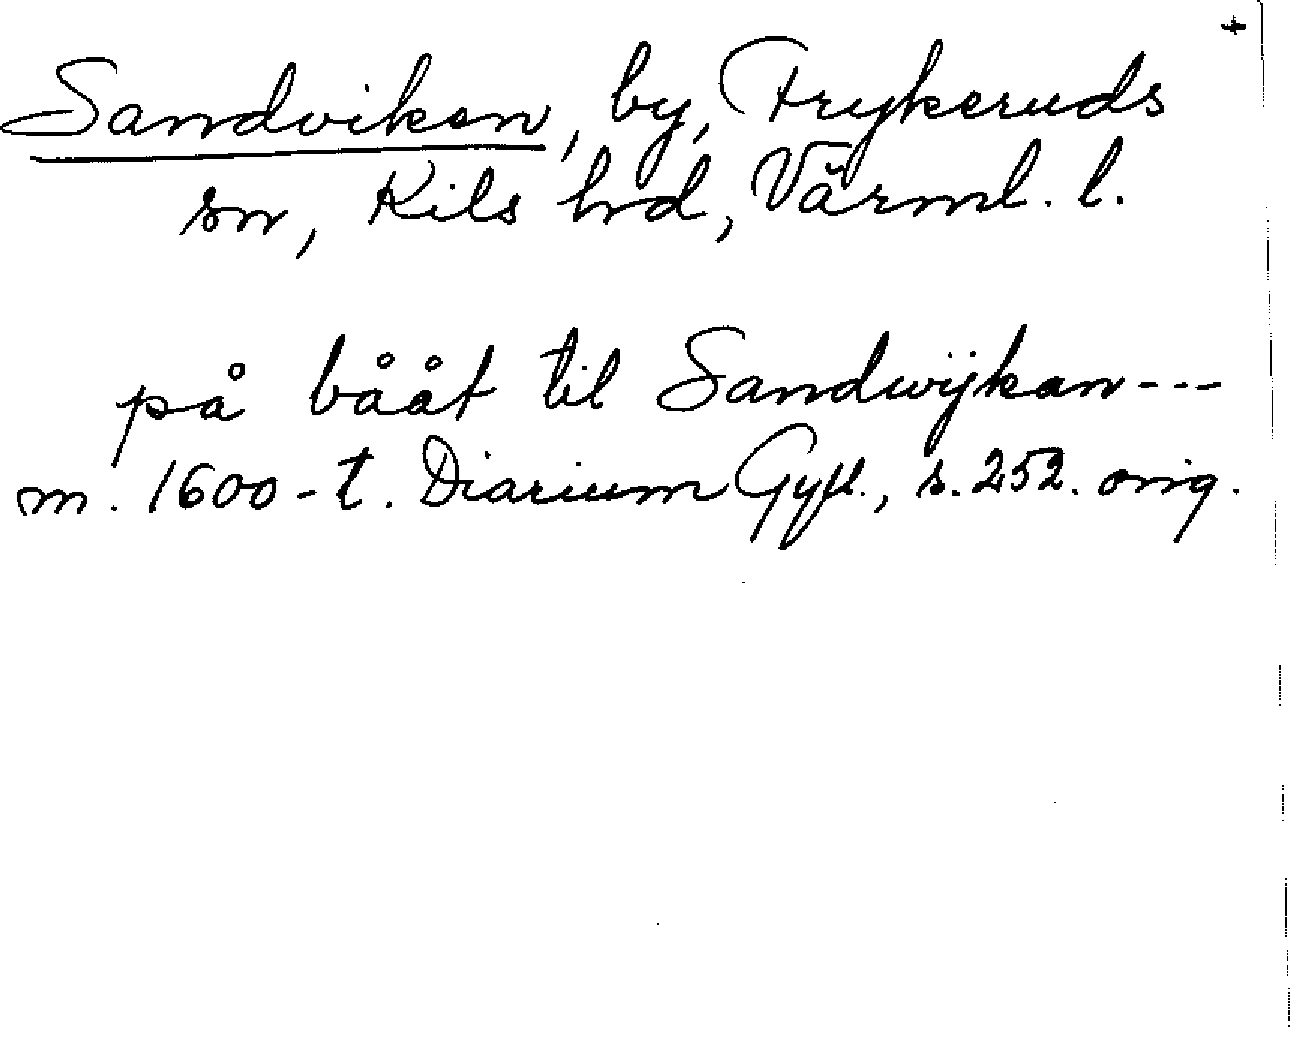 +
Sandviken, by, Frykeruds
sn, Kils hrd, Värml. l.
på bååt til Sandwijkan---
m. 1600-t. Diarium Gyll., s. 252. orig.